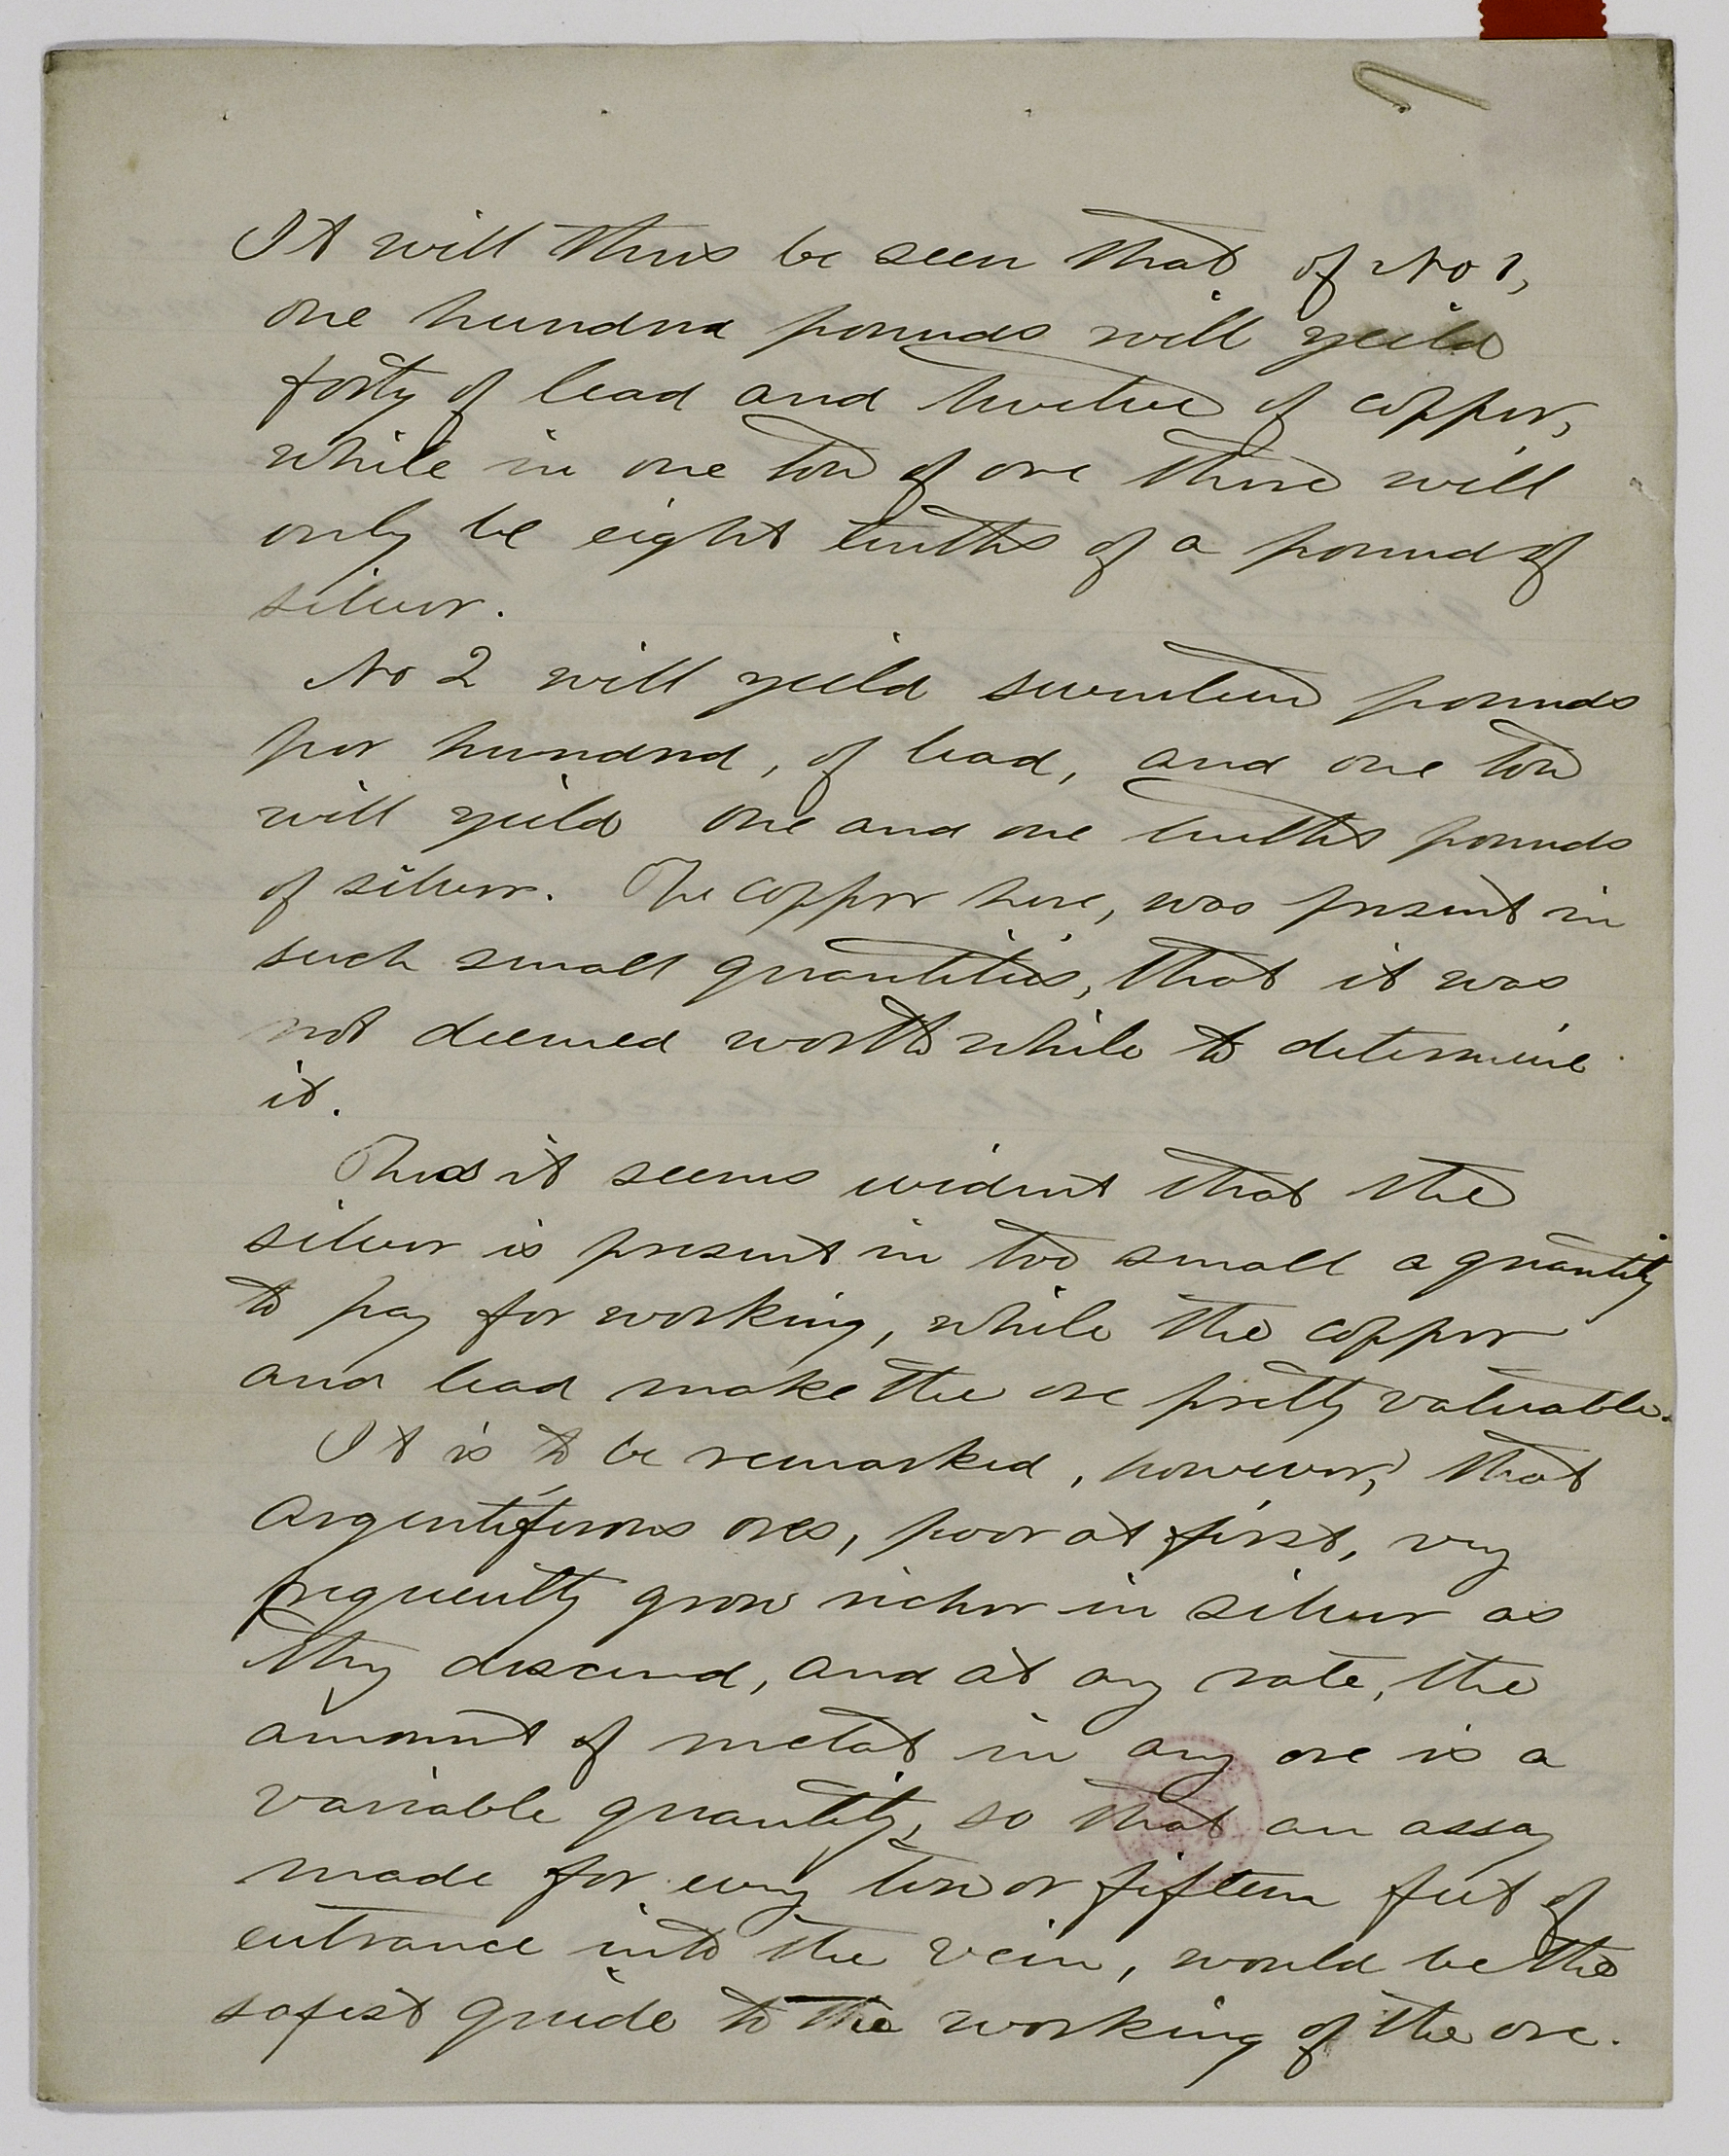 It will thus be seen that of No 1,
one hundred pounds will yeild
forty of lead and twelve of copper,
while in one ton of ore there will
only be eight tenths of a pound of
silver.
No 2 will yeild seventeen pounds
per hundred, of lead, and one ton
will yeild one and one tenths pounds
of silver. The copper here, was present in
such small quantities, that it was
not deemed worth while to determine
it.
Thus it seems evident that the
silver is present in too small a quantity
to pay for working, while the copper
and lead make the ore pretty valuable.
It is to be remarked, however, that
argentiferous ores, poor at first, very
frequently grow richer in silver as
they descend, and at any rate, the
amount of metal in any ore is a
variable quantity, so that an assay
made for every ten or fifteen feet of
entrance into the vein, would be the
safest guide to the working of the ore.